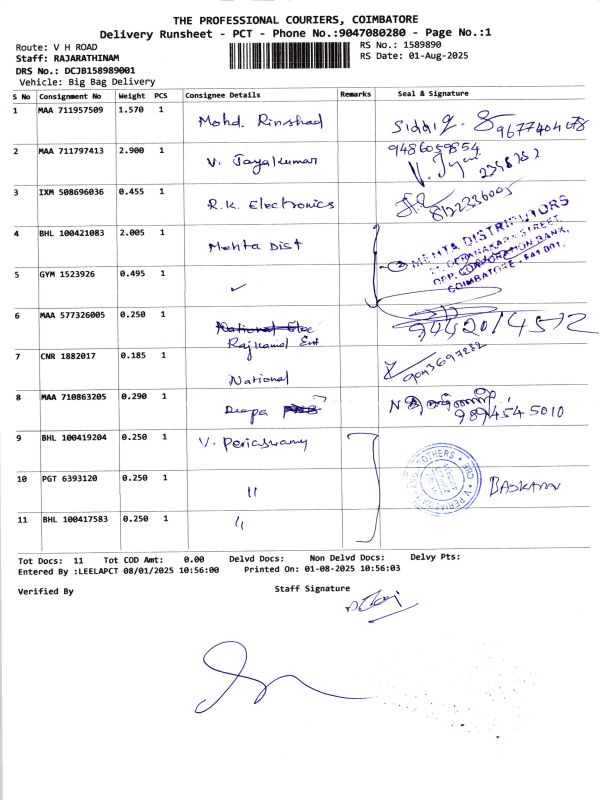 THE PROFESSIONAL COURIERS, COIMBATORE
Delivery Runsheet - PCT - Phone No.:9047080280 - Page No.:1
Route: V H ROAD
RS No.: 1589890
Staff: RAJARATHINAM
RS Date: 01-Aug-2025
DRS No.: DCJB158989001
Vehicle: Big Bag Delivery
S No Consignment No Weight PCS Consignee Details Remarks Seal & Signature
1 MAA 711957509 1.570 1 Mohd. Rinshad Siddiq. 9677404078
2 MAA 711797413 2.900 1 V. Jayakumar 9486059854
3 IXM 508696036 0.455 1 R.K. Electronics
4 BHL 100421083 2.005 1 Mehta Dist MEHTA DISTRIBUTORS
OPP. CORPORATION BANK,
COIMBATORE - 641 001.
5 GYM 1523926 0.495 1 ✓
6 MAA 577326005 0.250 1 Rajkamal Ent
7 CNR 1882017 0.185 1 National 9043697282
8 MAA 710863205 0.290 1 Deepa 9894545010
9 BHL 100419204 0.250 1 V. Periaswamy
10 PGT 6393120 0.250 1 " BASKARAN
11 BHL 100417583 0.250 1 "
Tot Docs: 11 Tot COD Amt: 0.00 Delvd Docs: Non Delvd Docs: Delvy Pts:
Entered By :LEELAPCT 08/01/2025 10:56:00 Printed On: 01-08-2025 10:56:03
Verified By Staff Signature